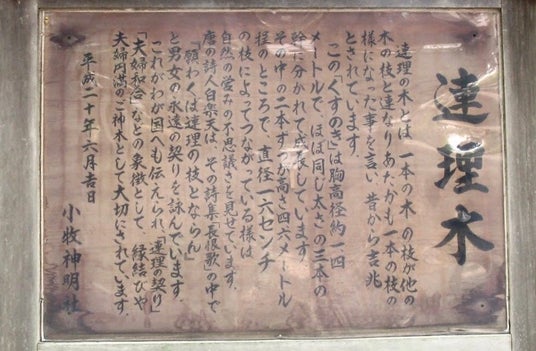 連理木
連理の木とは、一本の木の枝が他の
木の枝と連なりあたかも一本の枝の
様になった事を言い、昔から吉兆
とされています。
この「くすのき」は胸高径約一四
メートルで、ほぼ同じ太さの三本の
幹に分かれて成長しています。
その中の二本すづが高さ四六メートル
程のところで、直径一六センチ
の枝によってつながっている様は
自然の営みの不思議さを見せています。
唐の詩人白楽天は、その詩集「長恨歌」の中で
「願わくは連理の枝とならん」
と男女の永遠の契りを詠んでいます。
これがわが国へも伝えられ、「連理の契り」
「夫婦和合」などの象徴として、縁結びや
夫婦円満のご神木として大切にされています。
平成二十年六月吉日
小牧神明社